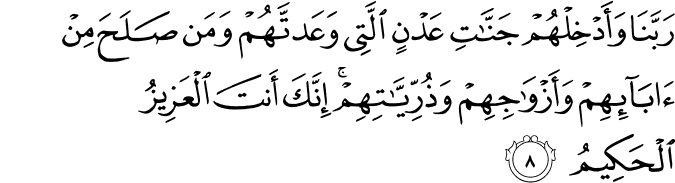 رَبَّنَا وَأَدۡخِلۡهُمۡ جَنَّـٰتِ عَدۡنٍ ٱلَّتِى وَعَدتَّهُمۡ وَمَن صَلَحَ مِنۡ
ءَابَآئِهِمۡ وَأَزۡوَٲجِهِمۡ وَذُرِّيَّـٰتِهِمۡ‌ۚ إِنَّكَ أَنتَ ٱلۡعَزِيزُ
ٱلۡحَكِيمُ ٨